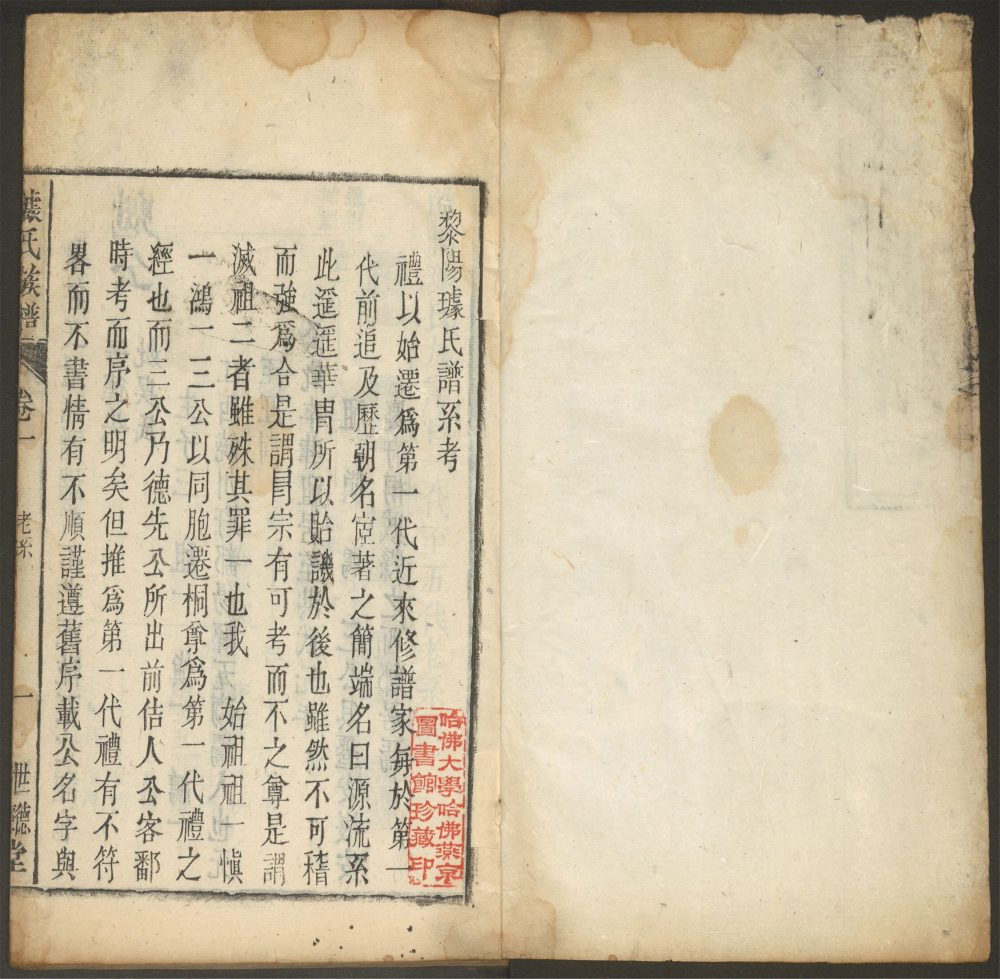 黎陽璩氏譜系考
禮以始遷爲第一代近來修譜家每於第一
代前追及歷朝名宦著之簡端名曰源流系
此遥遥華胄所以貽譏於後也雖然不可稽
而強爲合是謂冒宗有可考而不之尊是謂
滅祖二者雖殊其罪一也我 始祖祖一愼
一鴻一三公以同胞遷桐尊爲第一代禮之
經也而三公乃德先公所出前佶人公客鄱
時考而序之明矣但推爲第一代禮有不符
畧而不書情有不順謹遵舊序載公名字與
璩氏族譜 卷一 考系 一 世德堂
哈佛大學哈佛燕京
圖書館珍藏印